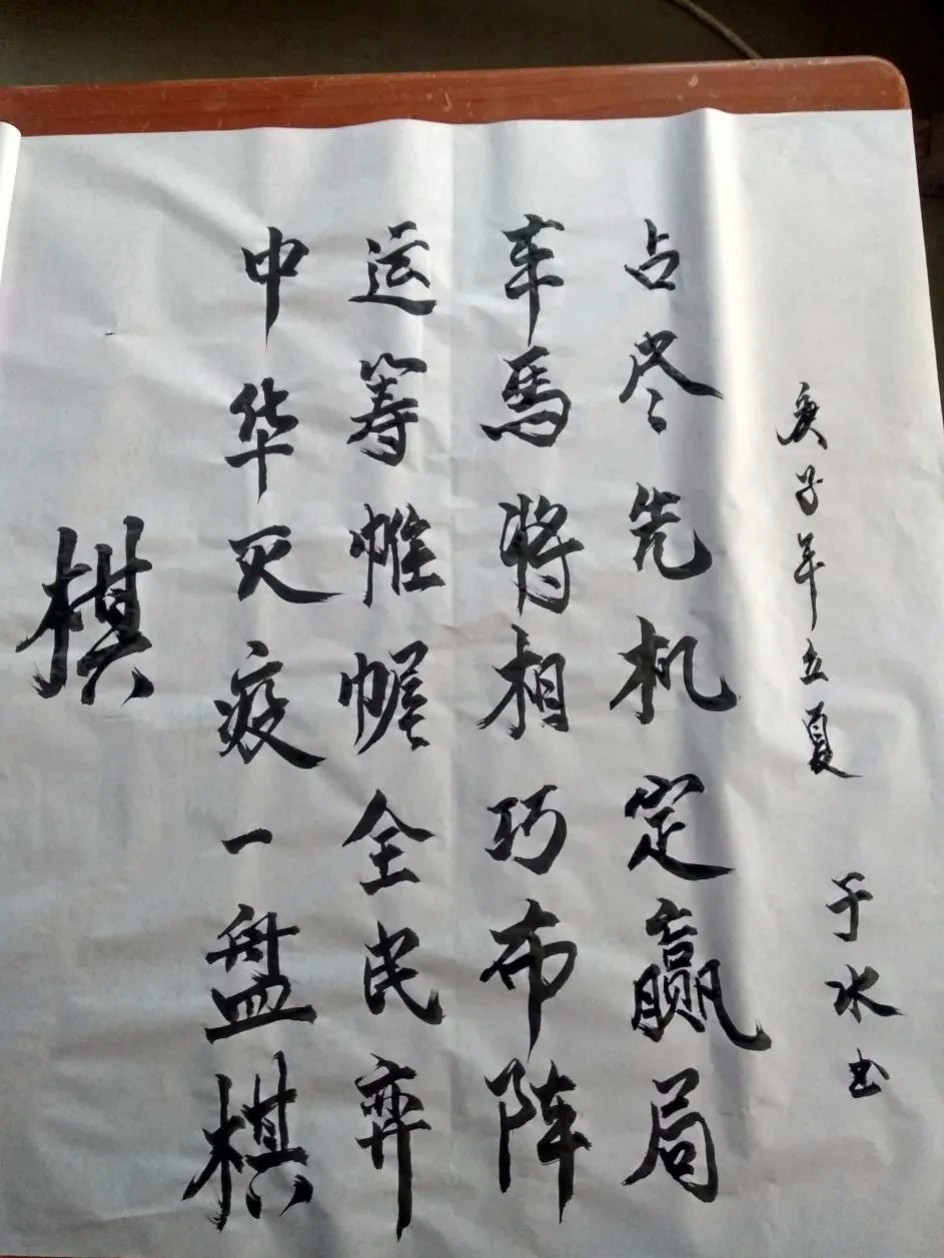 棋
中华灭疫一盘棋
运筹帷幄全民弈
车馬将相巧布阵
占尽先机定赢局
庚子年立夏
于水书